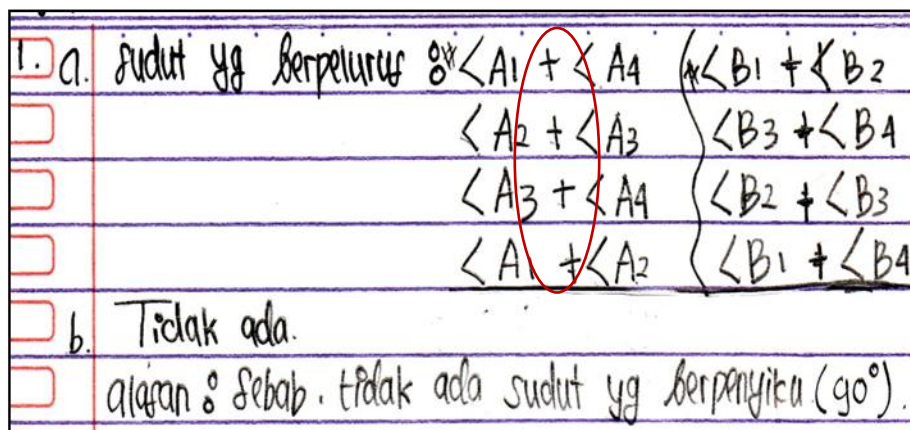 1. a. sudut yg berpelurus : * <A1 + <A4 * <B1 + <B2
<A2 + <A3 <B3 + <B4
<A3 + <A4 <B2 + <B3
<A1 + <A2 <B1 + <B4
b. Tidak ada.
alasan : Sebab. tidak ada sudut yg berpenyiku (90°).